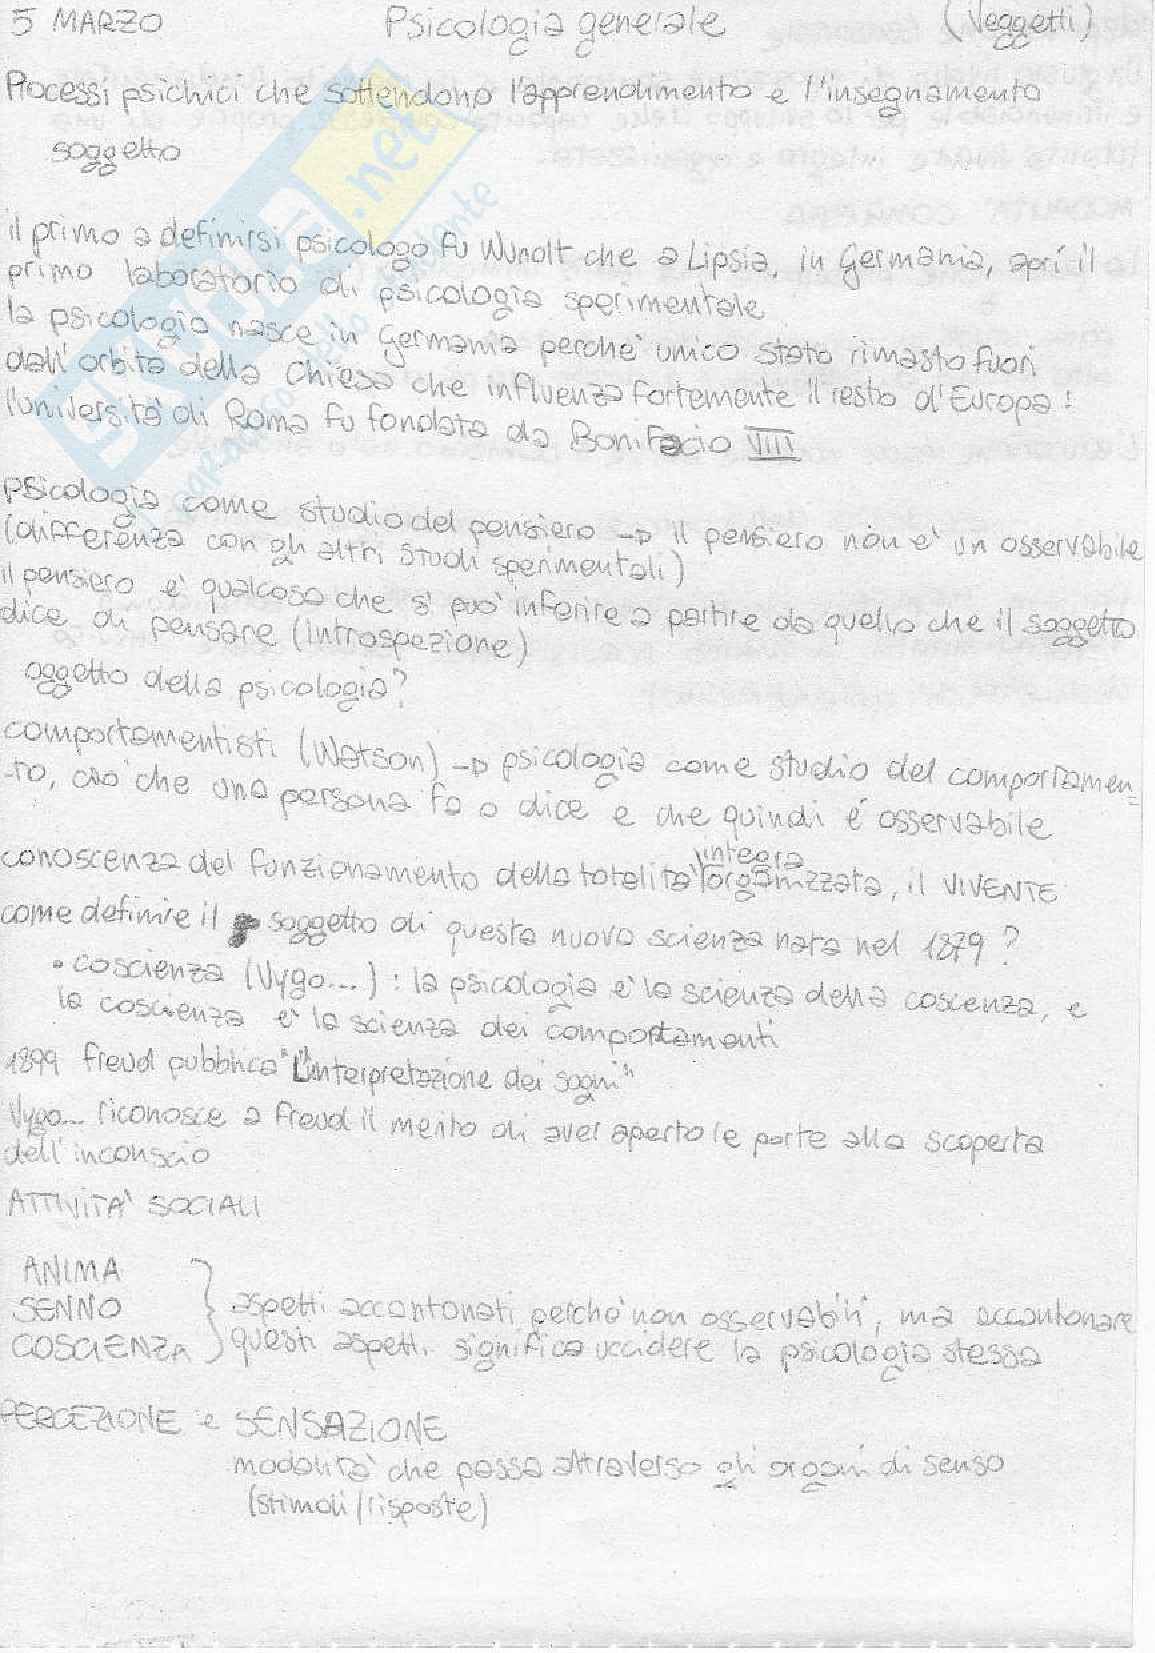 5 MARZO Psicologia generale (Veggetti)
Processi psichici che sottendono l'apprendimento e l'insegnamento
soggetto
il primo a definirsi psicologo fu Wundt che a Lipsia, in Germania, aprì il
primo laboratorio di psicologia sperimentale
la psicologia nasce in Germania perchè unico stato rimasto fuori
dall'orbita della Chiesa che influenza fortemente il resto d'Europa!
l'università di Roma fu fondata da Bonifacio VIIII
psicologia come studio del pensiero → il pensiero non è un osservabile
(differenza con gli altri studi sperimentali)
il pensiero è qualcosa che si può inferire a partire da quello che il soggetto
dice di pensare (introspezione)
oggetto della psicologia?
comportamentisti (Watson) → psicologia come studio del comportamen=
-to, ciò che una persona fa o dice e che quindi è osservabile
conoscenza del funzionamento della totalità integra organizzata, il VIVENTE
come definire il soggetto di questa nuova scienza nata nel 1879?
• coscienza (Vygo...): la psicologia è la scienza della coscenza, e
la coscienza è la scienza dei comportamenti
1899 Freud pubblica "L'interpretazione dei sogni"
Vygo... riconosce a Freud il merito di aver aperto le porte alla scoperta
dell'inconscio
ATTIVITA' SOCIALI
ANIMA
SENNO
COSCIENZA
aspetti accantonati perchè non osservabili, ma accantonare
questi aspetti significa uccidere la psicologia stessa
PERCEZIONE e SENSAZIONE
modalità che passa attraverso gli organi di senso
(stimoli/risposte)
SKUOLA.net